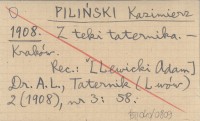 PILIŃSKI Kazimierz
1908. Z teki taternika. –
Kraków.
Rec.: "[Lewicki Adam]
Dr. A.L., Taternik (Lwów)
2 (1908), nr 3: 58.